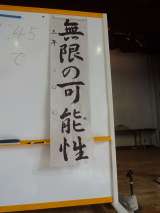 45
無限の可能性